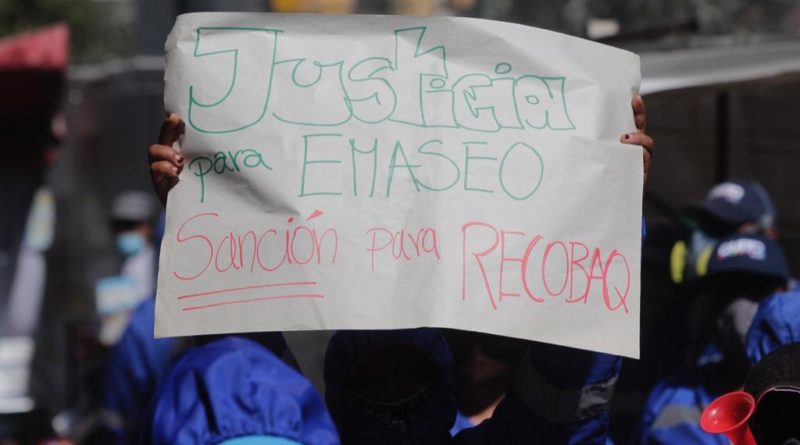 Justicia
para EMASEO
Sanción para RECOBAQ